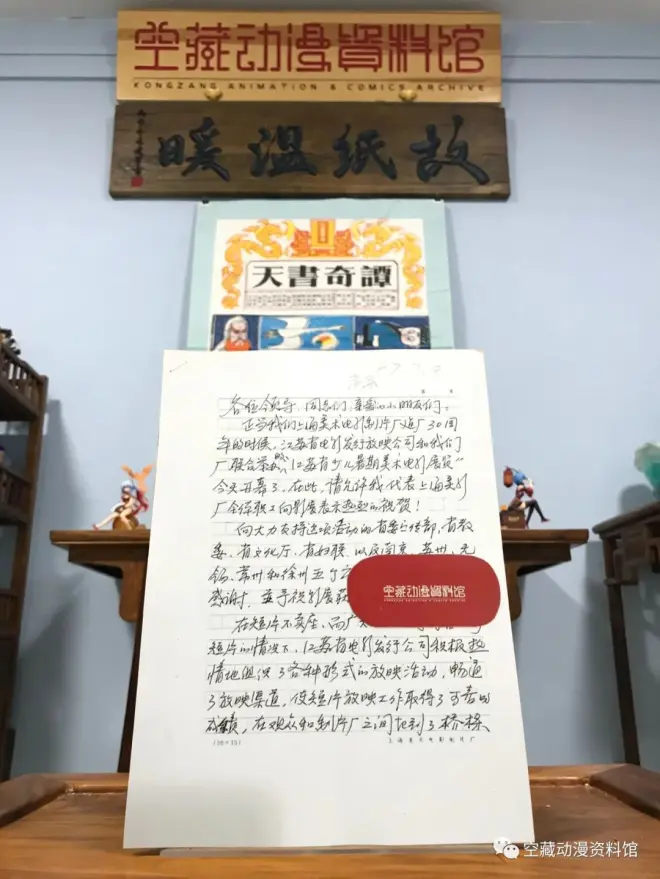 空藏动漫資料馆
KONGZANG ANIMATION & COMICS ARCHIVE
故纸温暖
天書奇譚
各位领导、同志们、亲爱的小朋友们:
正当我们上海美术电影制片厂建厂30周
年的时候,江苏省电影发行放映公司和我们
厂联合举办的"江苏省少儿暑期美术电影展览"
今天开幕了。在此,请允许我代表上海美影
厂全体职工向影展表示热烈的祝贺!
向大力支持这项活动的省委宣传部、省教
委、省文化厅、省妇联,以及南京、苏州、无
锡、常州和徐州五个
感谢,并予祝影展获
空藏动漫資料馆
在短片不卖座,而广
短片的情况下,江苏省电影发行公司积极热
情地组织了各种形式的放映活动,畅通
了放映渠道,使短片放映工作取得了可喜的
成绩,在观众和制片厂之间起到了桥梁
上海美术电影制片厂
空藏动漫资料馆